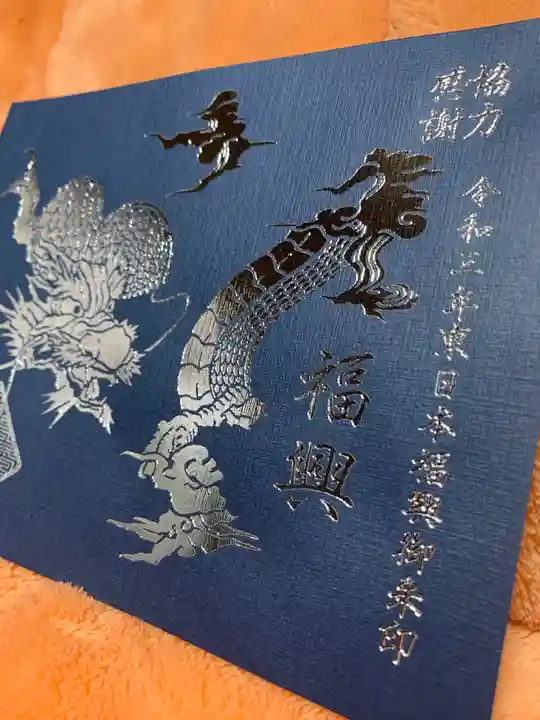 協力
感謝
令和三年東日本福興御朱印
福興